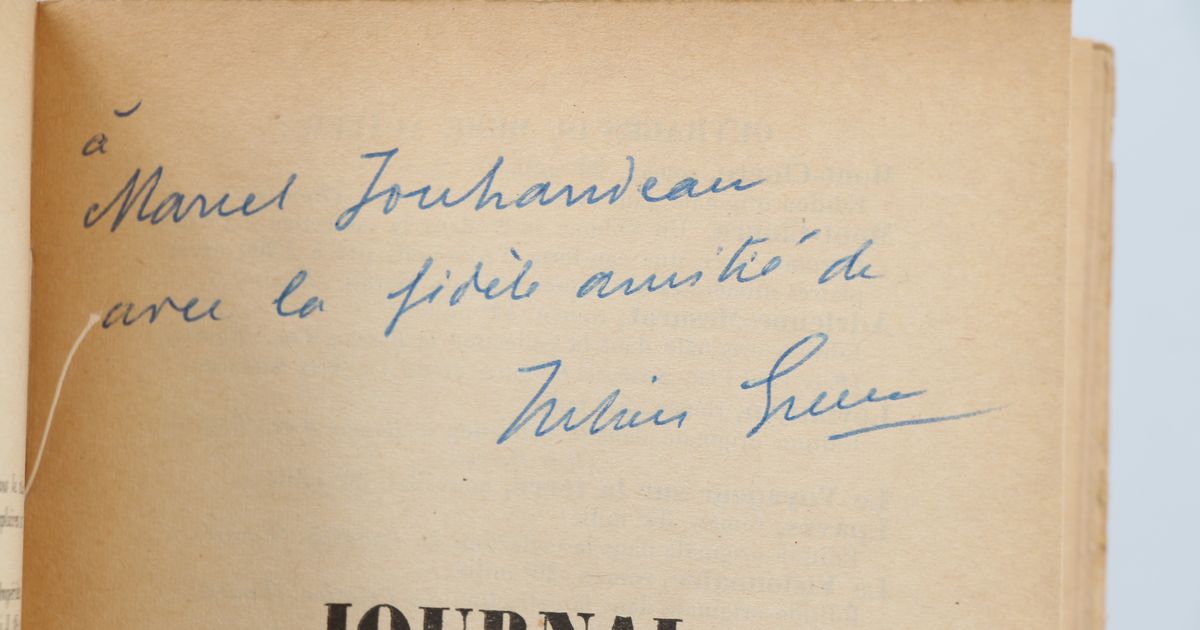 à
Marcel Jouhandeau
avec la fidèle amitié de
Julien Green
JOURNAL